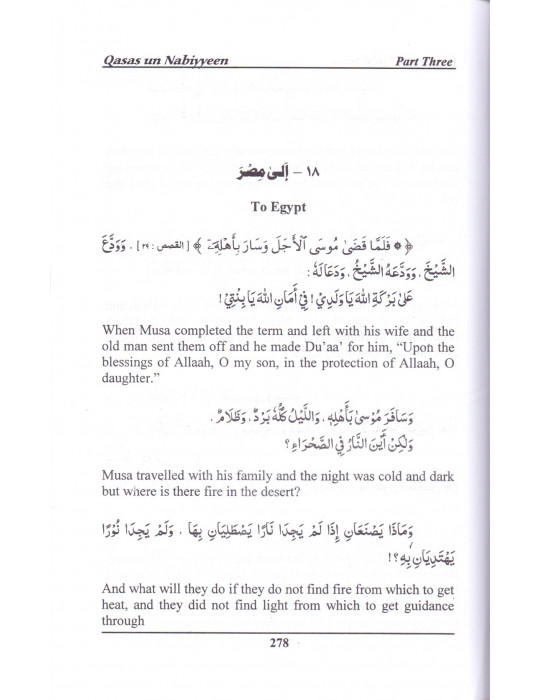 Qasas un Nabiyyeen Part Three
١٨ - إلَىٰ مِصْرَ
To Egypt
﴿ ۞ فَلَمَّا قَضَىٰ مُوسَى ٱلْأَجَلَ وَسَارَ بِأَهْلِهِۦٓ ﴾ [القصص : ٢٩] . وَوَدَّعَ
الشَّيْخَ ، وَوَدَّعَهُ الشَّيْخُ ، وَدَعَا لَهُ :
عَلَىٰ بَرَكَةِ اللهِ يَا وَلَدِيْ ! فِيْ أَمَانِ اللهِ يَا بِنْتِيْ !
When Musa completed the term and left with his wife and the
old man sent them off and he made Du'aa' for him, “Upon the
blessings of Allaah, O my son, in the protection of Allaah, O
daughter.”
وَسَافَرَ مُوْسَىٰ بِأَهْلِهِ ، وَاللَّيْلُ كُلُّهُ بَرْدٌ ، وَظَلَامٌ .
وَلٰكِنْ أَيْنَ النَّارُ فِي الصَّحْرَاءِ ؟
Musa travelled with his family and the night was cold and dark
but where is there fire in the desert?
وَمَاذَا يَصْنَعَانِ إِذَا لَمْ يَجِدَا نَارًا يَصْطَلِيَانِ بِهَا ، وَلَمْ يَجِدَا نُوْرًا
يَهْتَدِيَانِ بِهِ ؟!
And what will they do if they do not find fire from which to get
heat, and they did not find light from which to get guidance
through
278